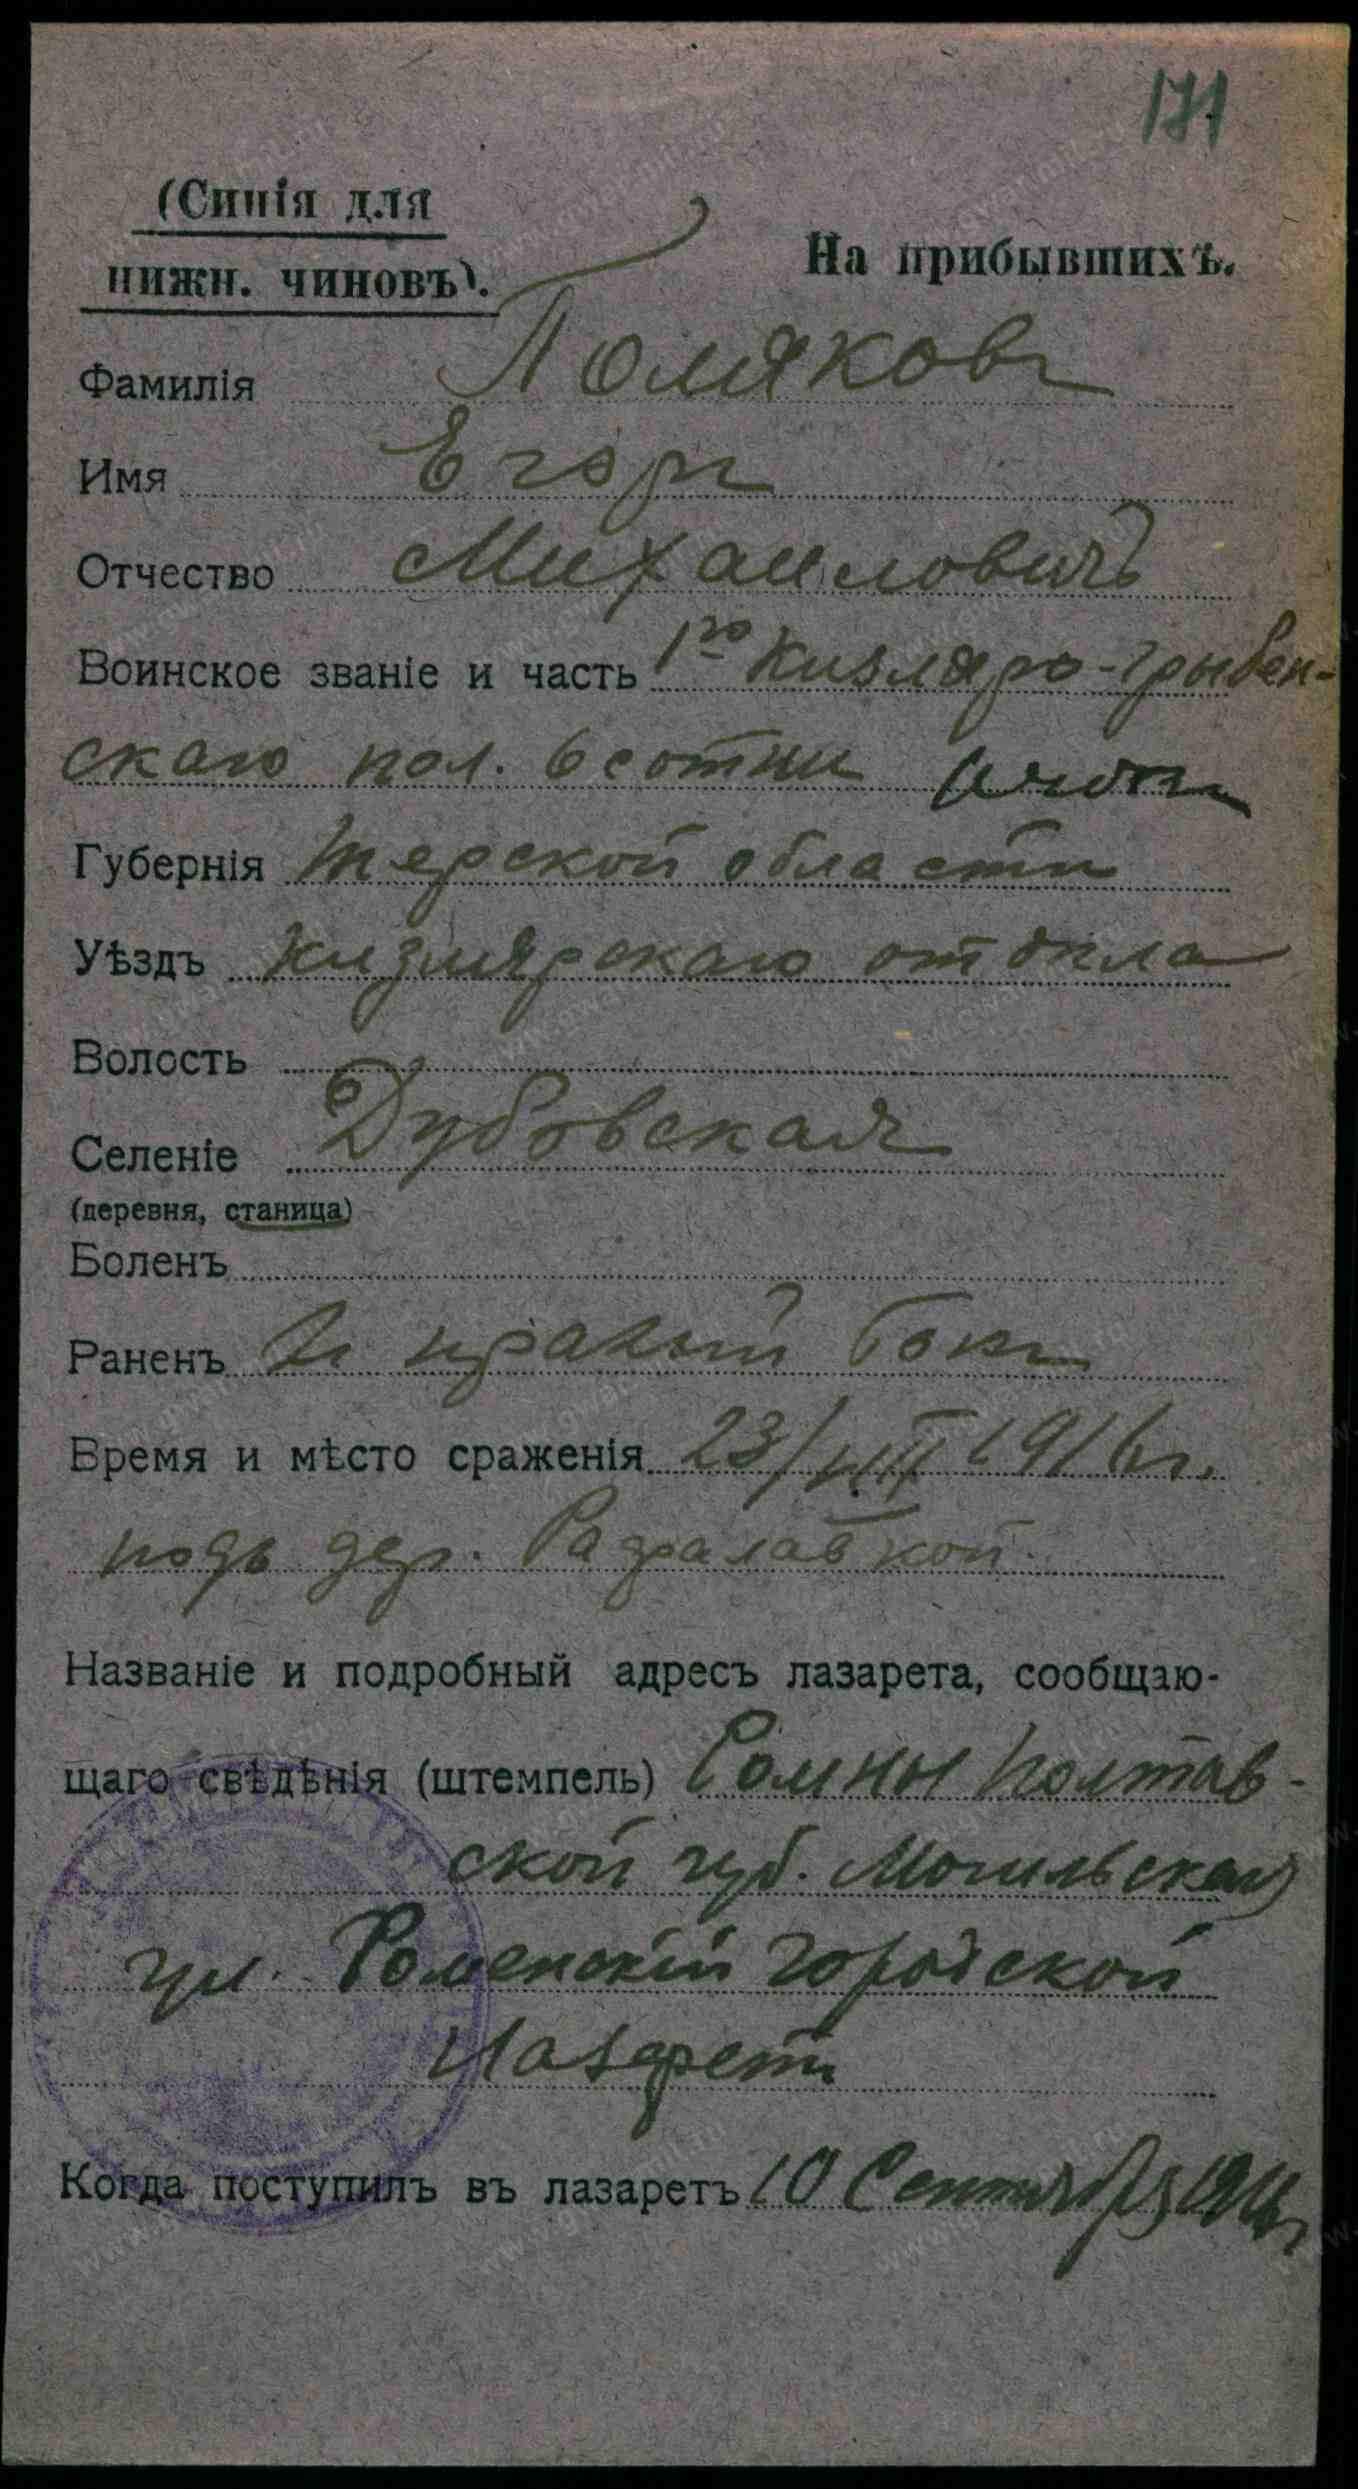 171
(Синія для
нижн. чиновъ).
На прибывшихъ.
Фамилія Поляковъ
Имя Егоръ
Отчество Михаиловичъ
Воинское званіе и часть 1го Кизляро-Грыбен-
скаго пол. 6 сотни
Губернія Терской области
Уѣздъ Кизлярскаго отдѣла
Волость
Селеніе Дубовская
(деревня, станица)
Боленъ
Раненъ въ правый бокъ
Время и мѣсто сраженія 23/VIII 1916 г.
подъ дер. Рафалавкой
Названіе и подробный адресъ лазарета, сообщаю-
щаго свѣдѣнія (штемпель) Ромны Полтав-
ской губ.
ул. Роменскій городской
Лазаретъ
Когда поступилъ въ лазаретъ 10 Сентября 1916 г